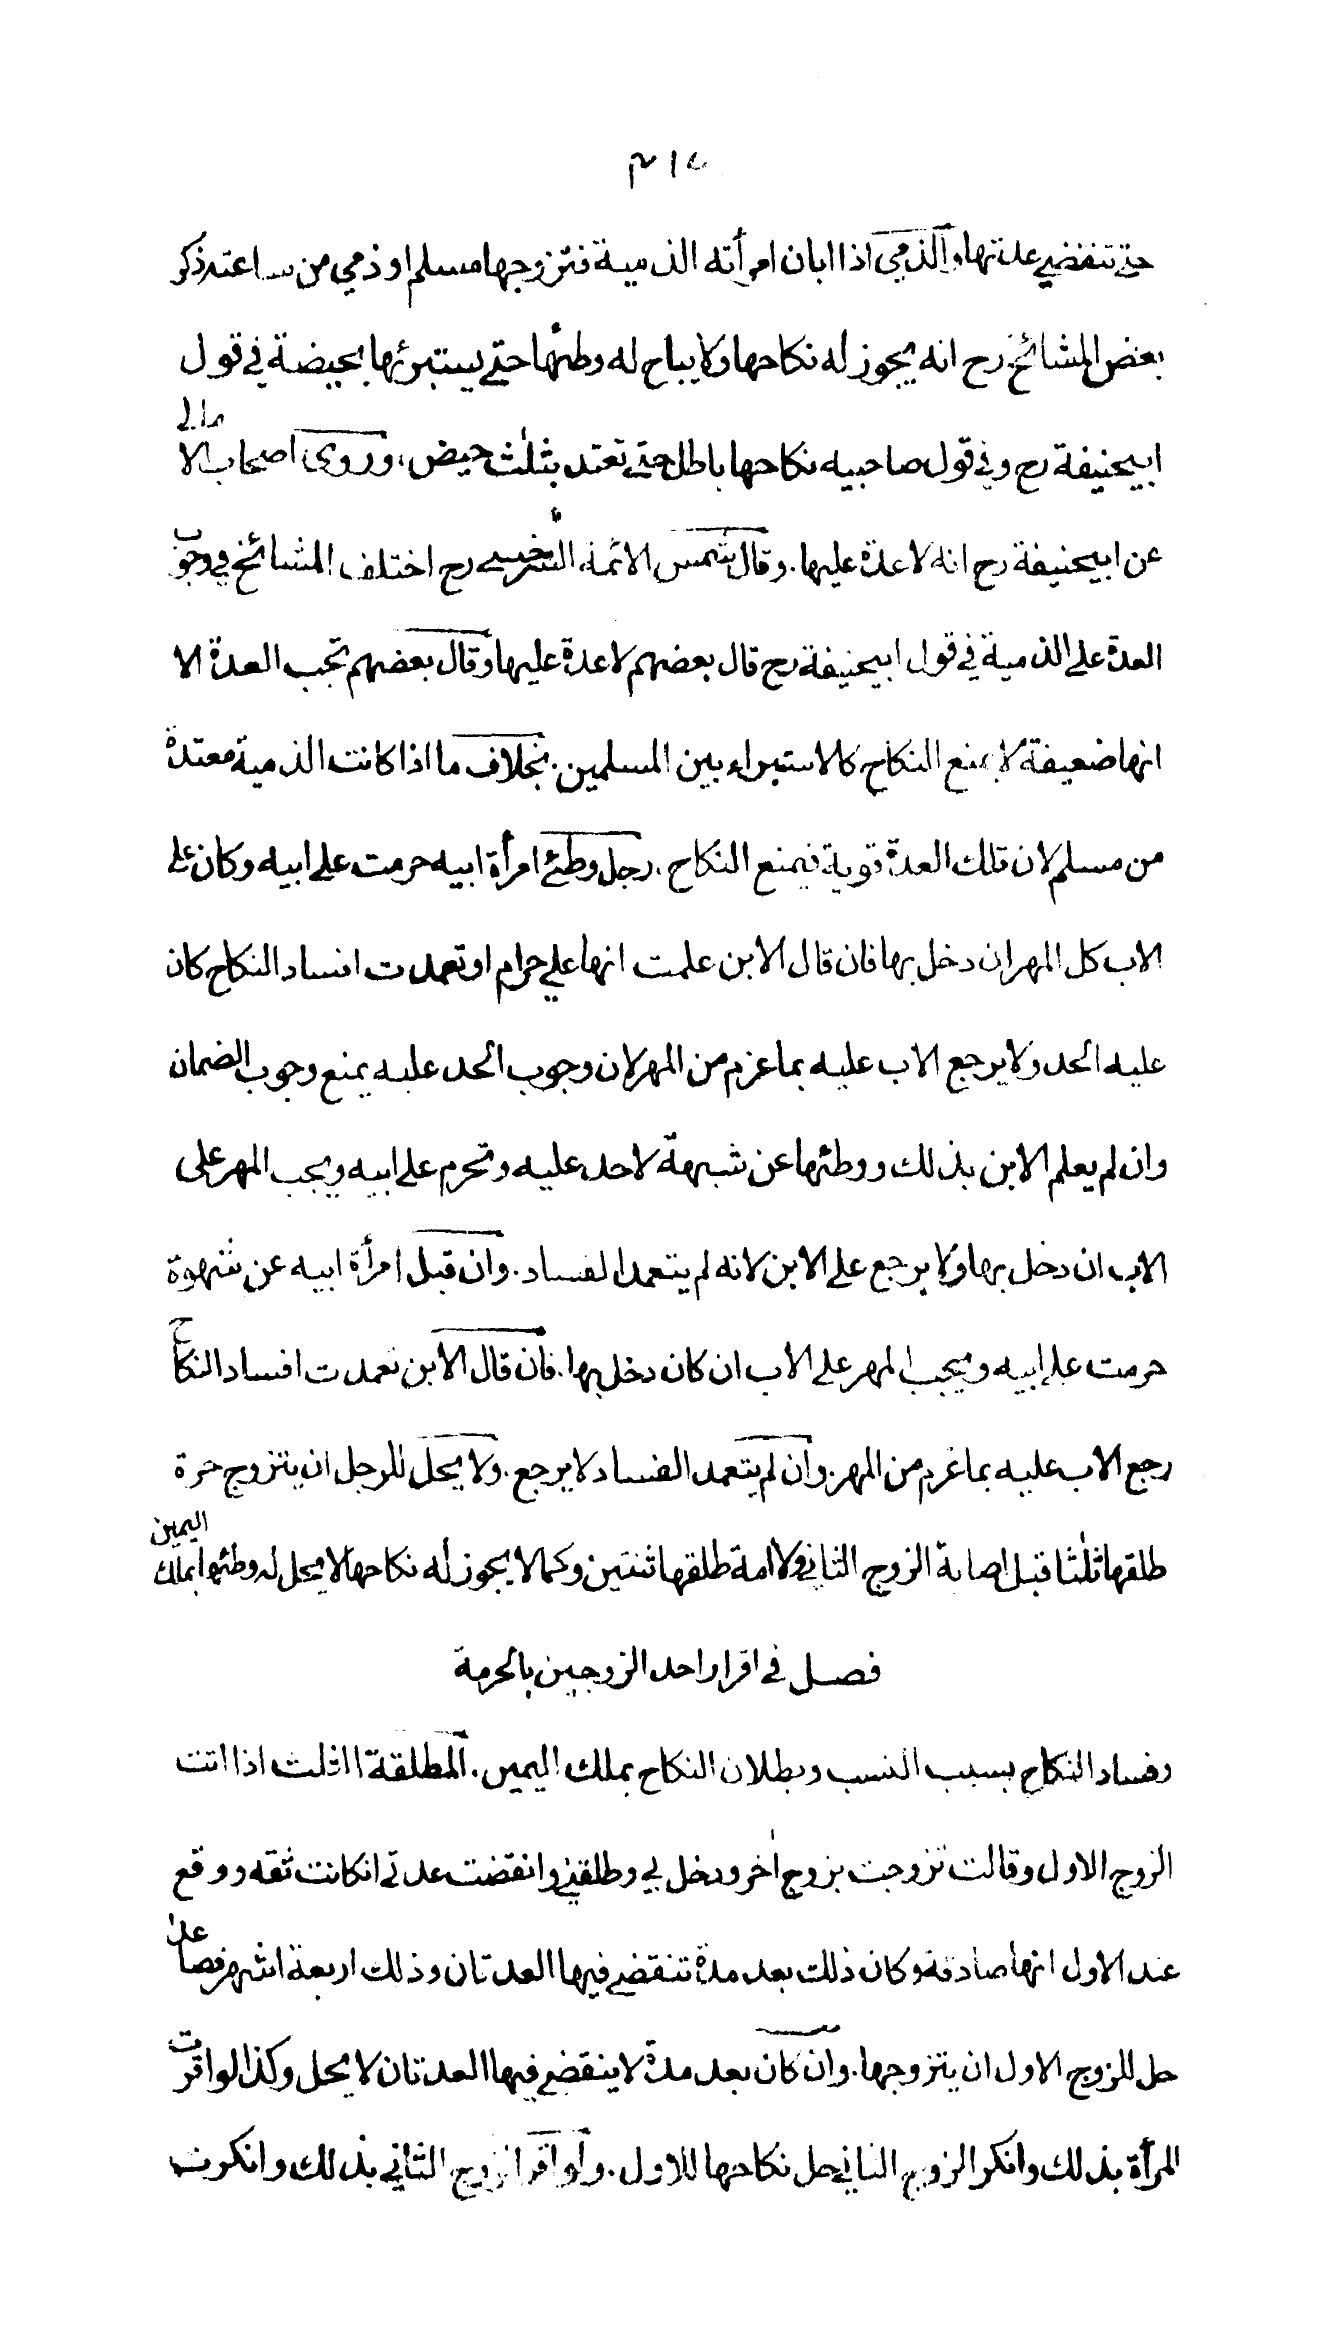 ٣١٧
حتى تنقضي عدتها والذمي اذا ابان امرأته الذمية فتزوجها مسلم او ذمي من ساعته ذكر
بعض المشائخ رح انه يجوز له نكاحها ولا يباح له وطئها حتى يستبرئها بحيضة في قول
ابيحنيفة رح وفي قول صاحبيه نكاحها باطل حتى تعتد بثلث حيض، وروى اصحاب الامالي
عن ابيحنيفة رح انه لا عدة عليها. وقال شمس الائمة السرخسي رح اختلف المشائخ في وجوب
العدة على الذمية في قول ابيحنيفة رح قال بعضهم لا عدة عليها وقال بعضهم تجب العدة الا
انها ضعيفة لا يمنع النكاح كالاستبراء بين المسلمين. بخلاف ما اذا كانت الذمية معتدة
من مسلم لان تلك العدة قوية فيمنع النكاح. رجل وطئ امرأة ابيه حرمت على ابيه وكان على
الاب كل المهر ان دخل بها فان قال الابن علمت انها علي حرام او تعمدت افساد النكاح كان
عليه الحد ولا يرجع الاب عليه بما غرم من المهر لان وجوب الحد عليه يمنع وجوب الضمان
وان لم يعلم الابن بذلك ووطئها عن شبهة لا حد عليه وتحرم على ابيه ويجب المهر على
الاب ان دخل بها ولا يرجع على الابن لانه لم يتعمد الفساد. وان قبل امرأة ابيه عن شهوة
حرمت على ابيه ويجب المهر على الاب ان كان دخل بها. فان قال الابن تعمدت افساد النكاح
رجع الاب عليه بما غرم من المهر. وان لم يتعمد الفساد لا يرجع. ولا يحل للرجل ان يتزوج حرة
طلقها ثلثا قبل اصابة الزوج الثاني ولا امة طلقها ثنتين وكما لا يجوز له نكاحها لا يحل له وطئها بملك اليمين
فصل في اقرار احد الزوجين بالحرمة
وفساد النكاح بسبب النسب وبطلان النكاح بملك اليمين. المطلقة الثلث اذا اتت
الزوج الاول وقالت تزوجت بزوج أخر ودخل بي وطلقني وانقضت عدتي انكانت ثقه ووقع
عند الاول انها صادقة وكان ذلك بعد مدة تنقضي فيها العدتان وذلك اربعة اشهر فصاعدا
حل للزوج الاول ان يتزوجها. وان كان بعد مدة لا ينقضي فيها العدتان لا يحل وكذا لو اقرت
المرأة بذلك وانكر الزوج الثاني حل نكاحها للاول. ولو اقر الزوج الثاني بذلك وانكرت